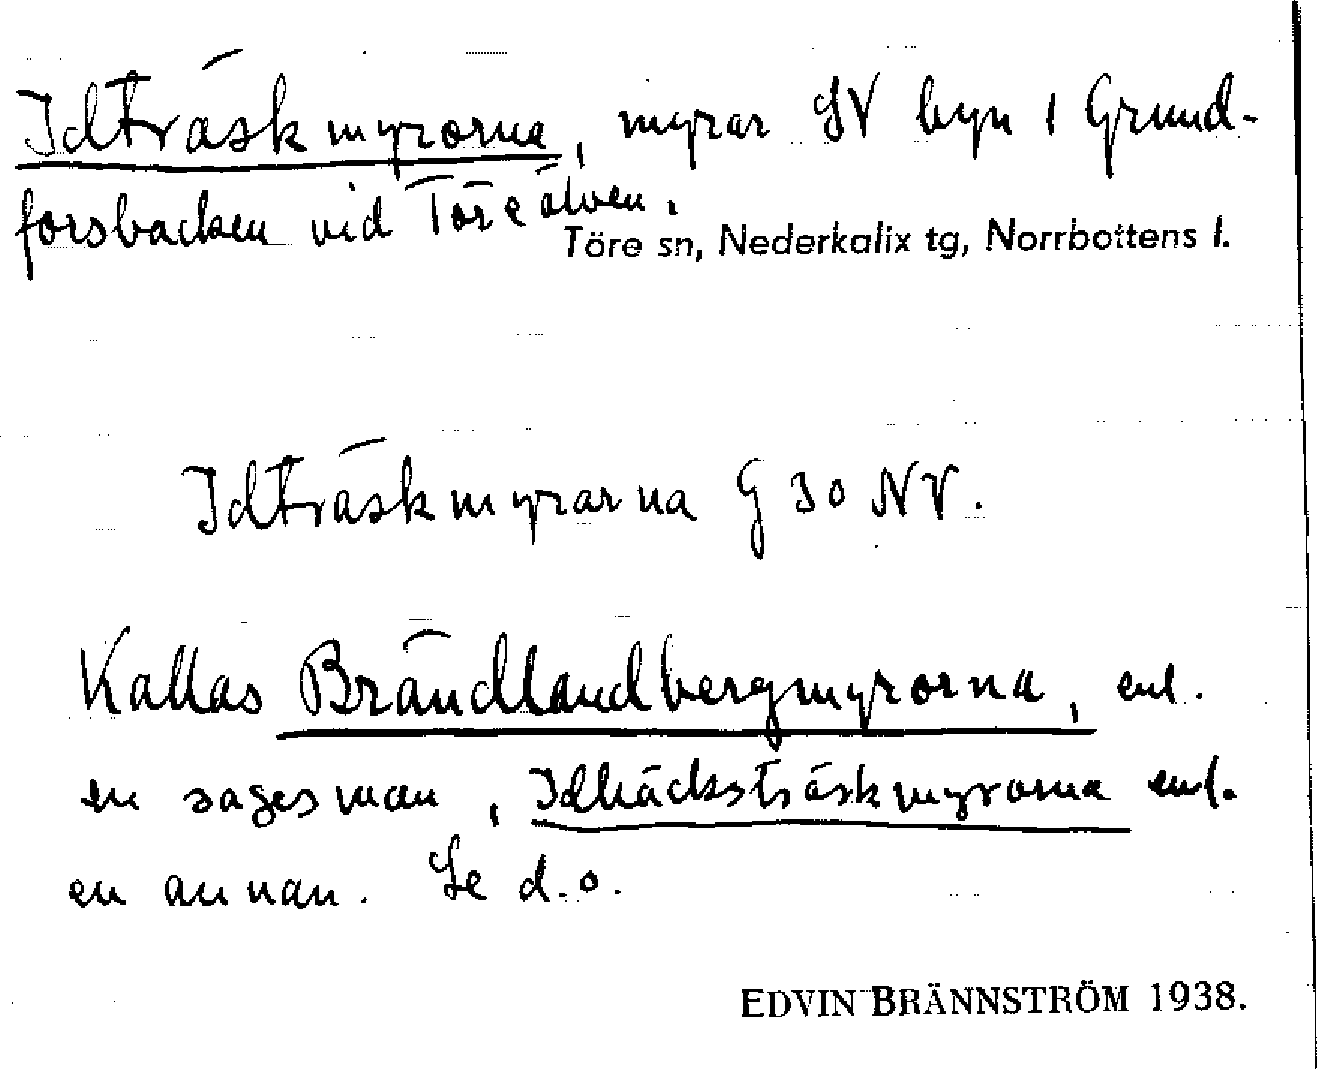 Idträskmyrorna, myrar SV byn i Grund-
forsbacken vid Töreälven.
Töre sn, Nederkalix tg, Norrbottens l.
Idträskmyrarna G 30 NV.
Kallas Brändlandbergmyrorna, enl.
en sagesman, Idbäcksträskmyrorna enl.
en annan. Se d.o.
EDVIN BRÄNNSTRÖM 1938.